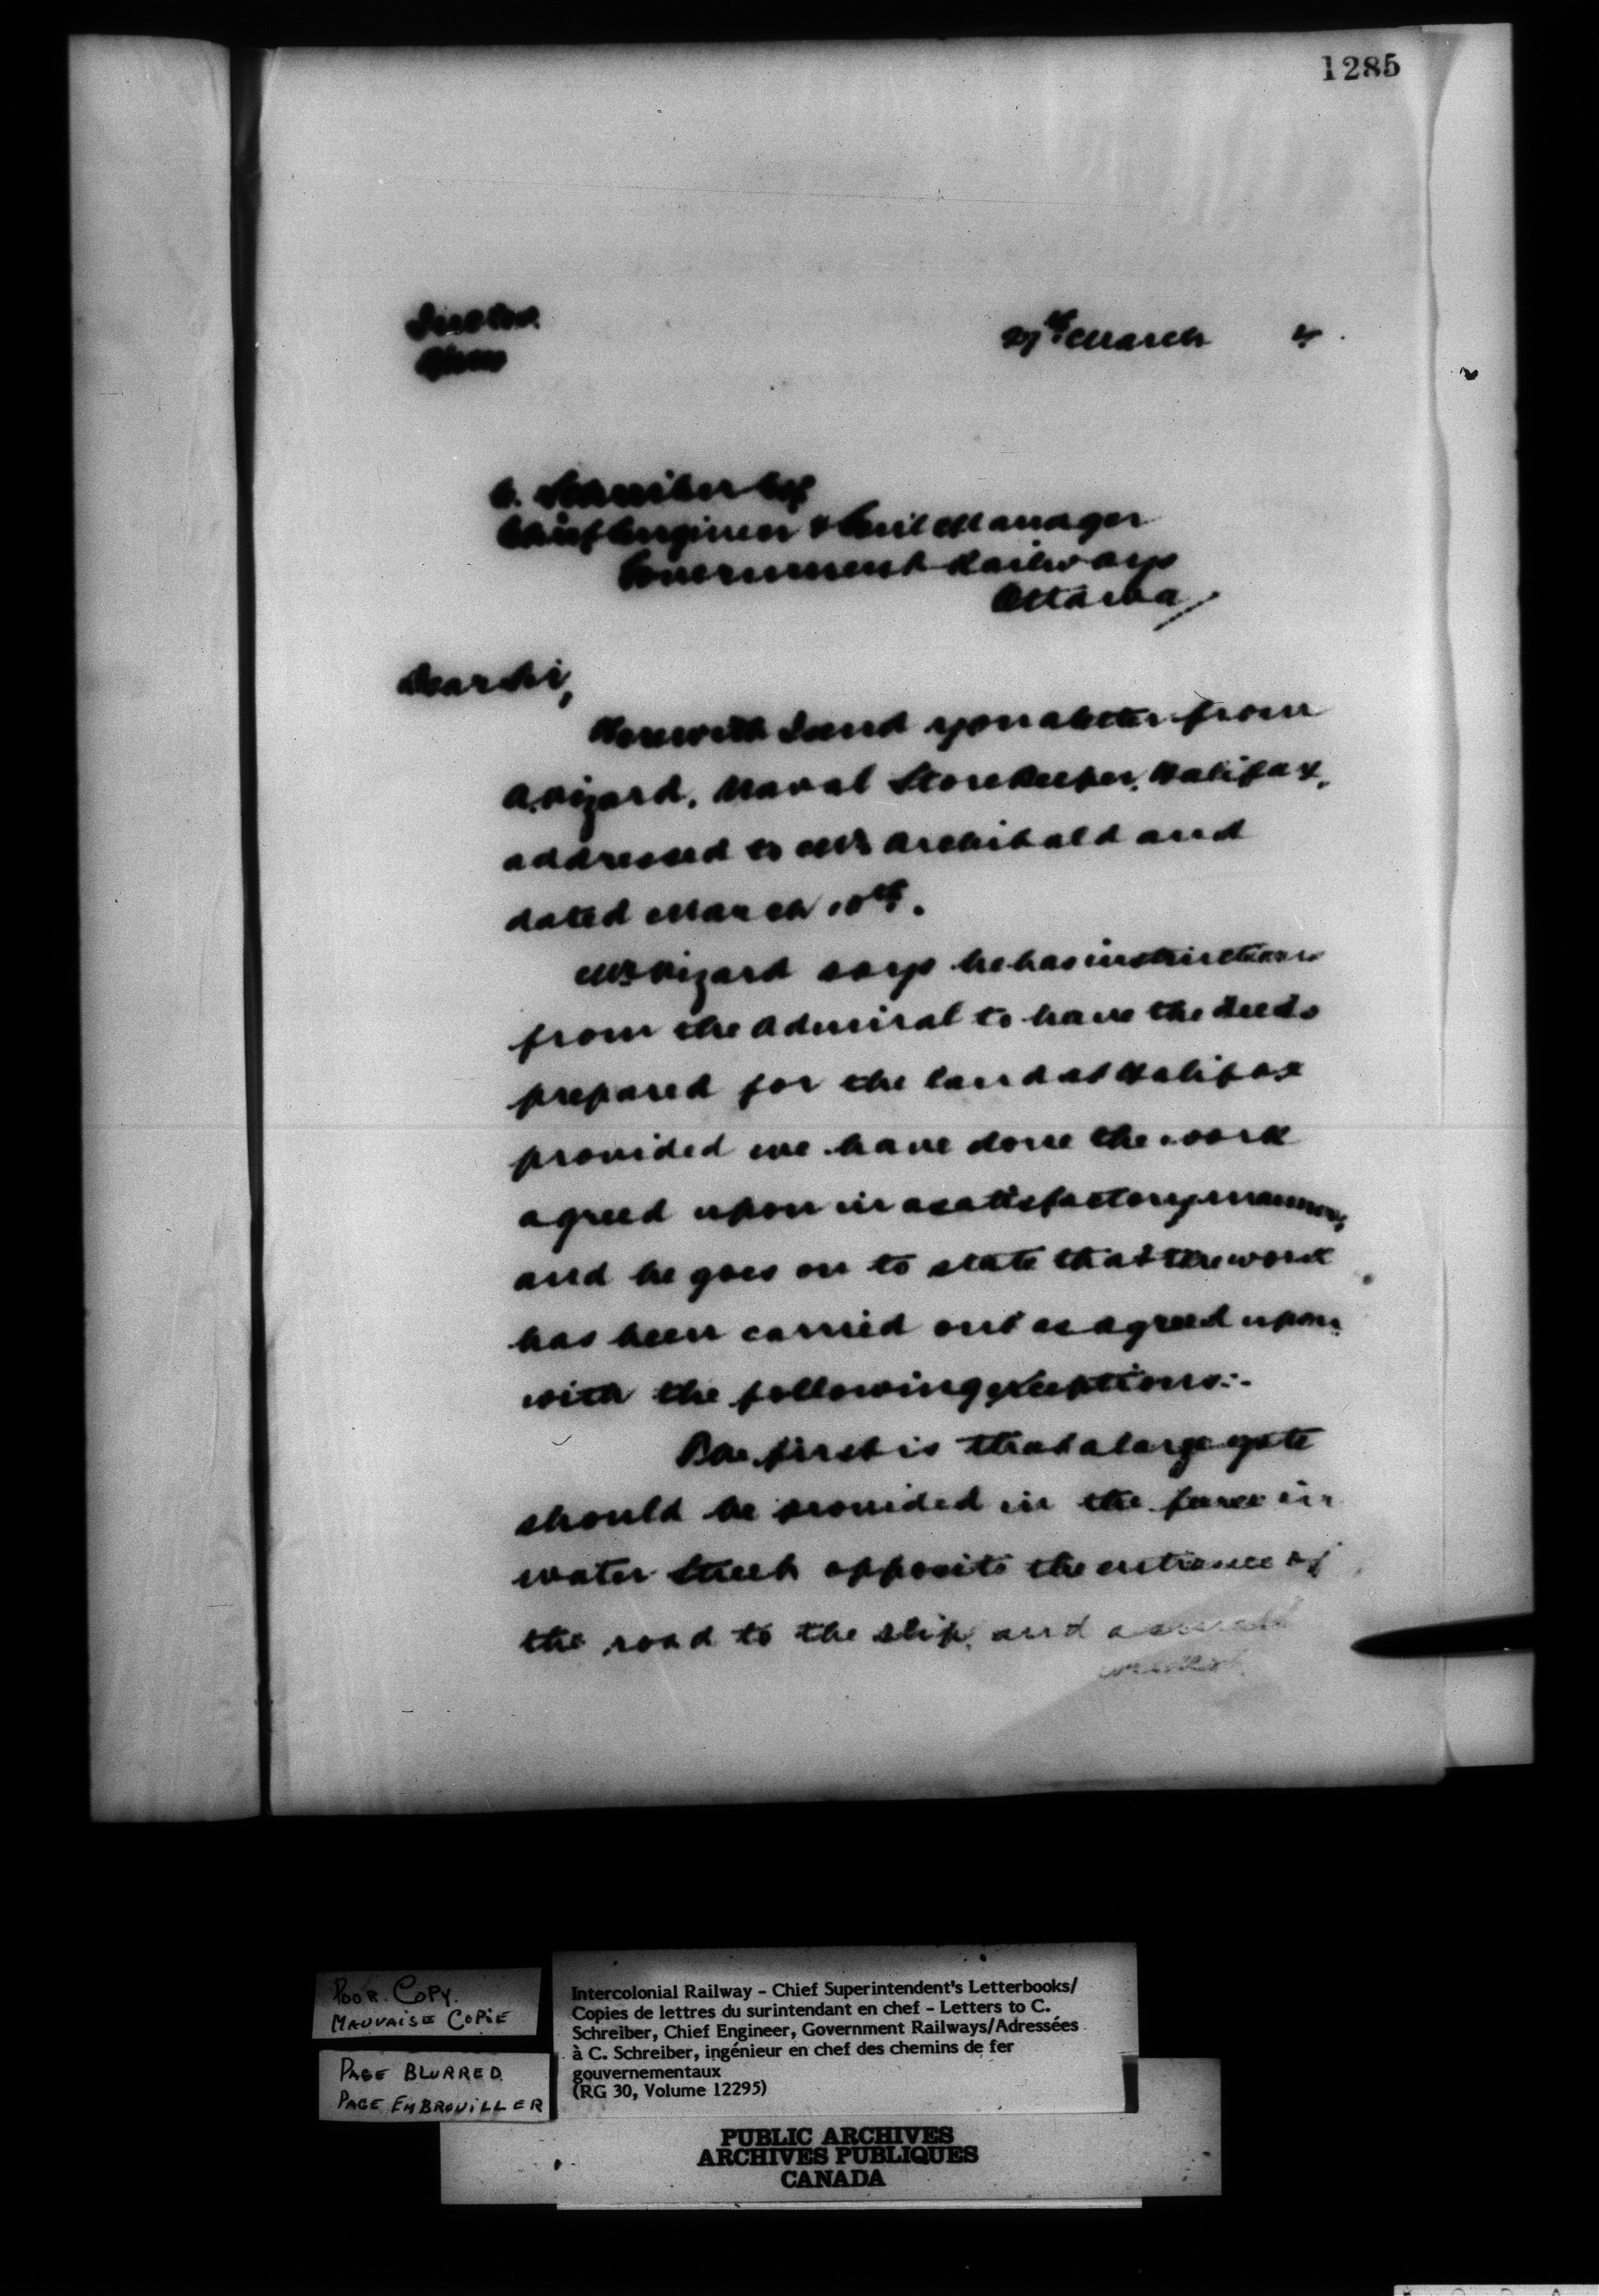 1285
27th March 4.
C. Schreiber Esq
Chief Engineer & Genl Manager
Government Railways
Ottawa
Dear Sir,
Herewith I send you a letter from
A. Vizard, Naval Storekeeper, Halifax,
addressed to Mr Archibald and
dated March 10th.
Mr Vizard says he has instructions
from the Admiral to have the deeds
prepared for the land at Halifax
provided we have done the work
agreed upon in a satisfactory manner,
and he goes on to state that the work
has been carried out as agreed upon
with the following exceptions:-
The first is that a large gate
should be provided in the fence in
water Street opposite the entrance of
the road to the slip, and a small
Poor. Copy.
Mauvaise Copie
Page Blurred
Page Embrouiller
Intercolonial Railway – Chief Superintendent's Letterbooks/
Copies de lettres du surintendant en chef – Letters to C.
Schreiber, Chief Engineer, Government Railways/Adressées
à C. Schreiber, ingénieur en chef des chemins de fer
gouvernementaux
(RG 30, Volume 12295)
PUBLIC ARCHIVES
ARCHIVES PUBLIQUES
CANADA